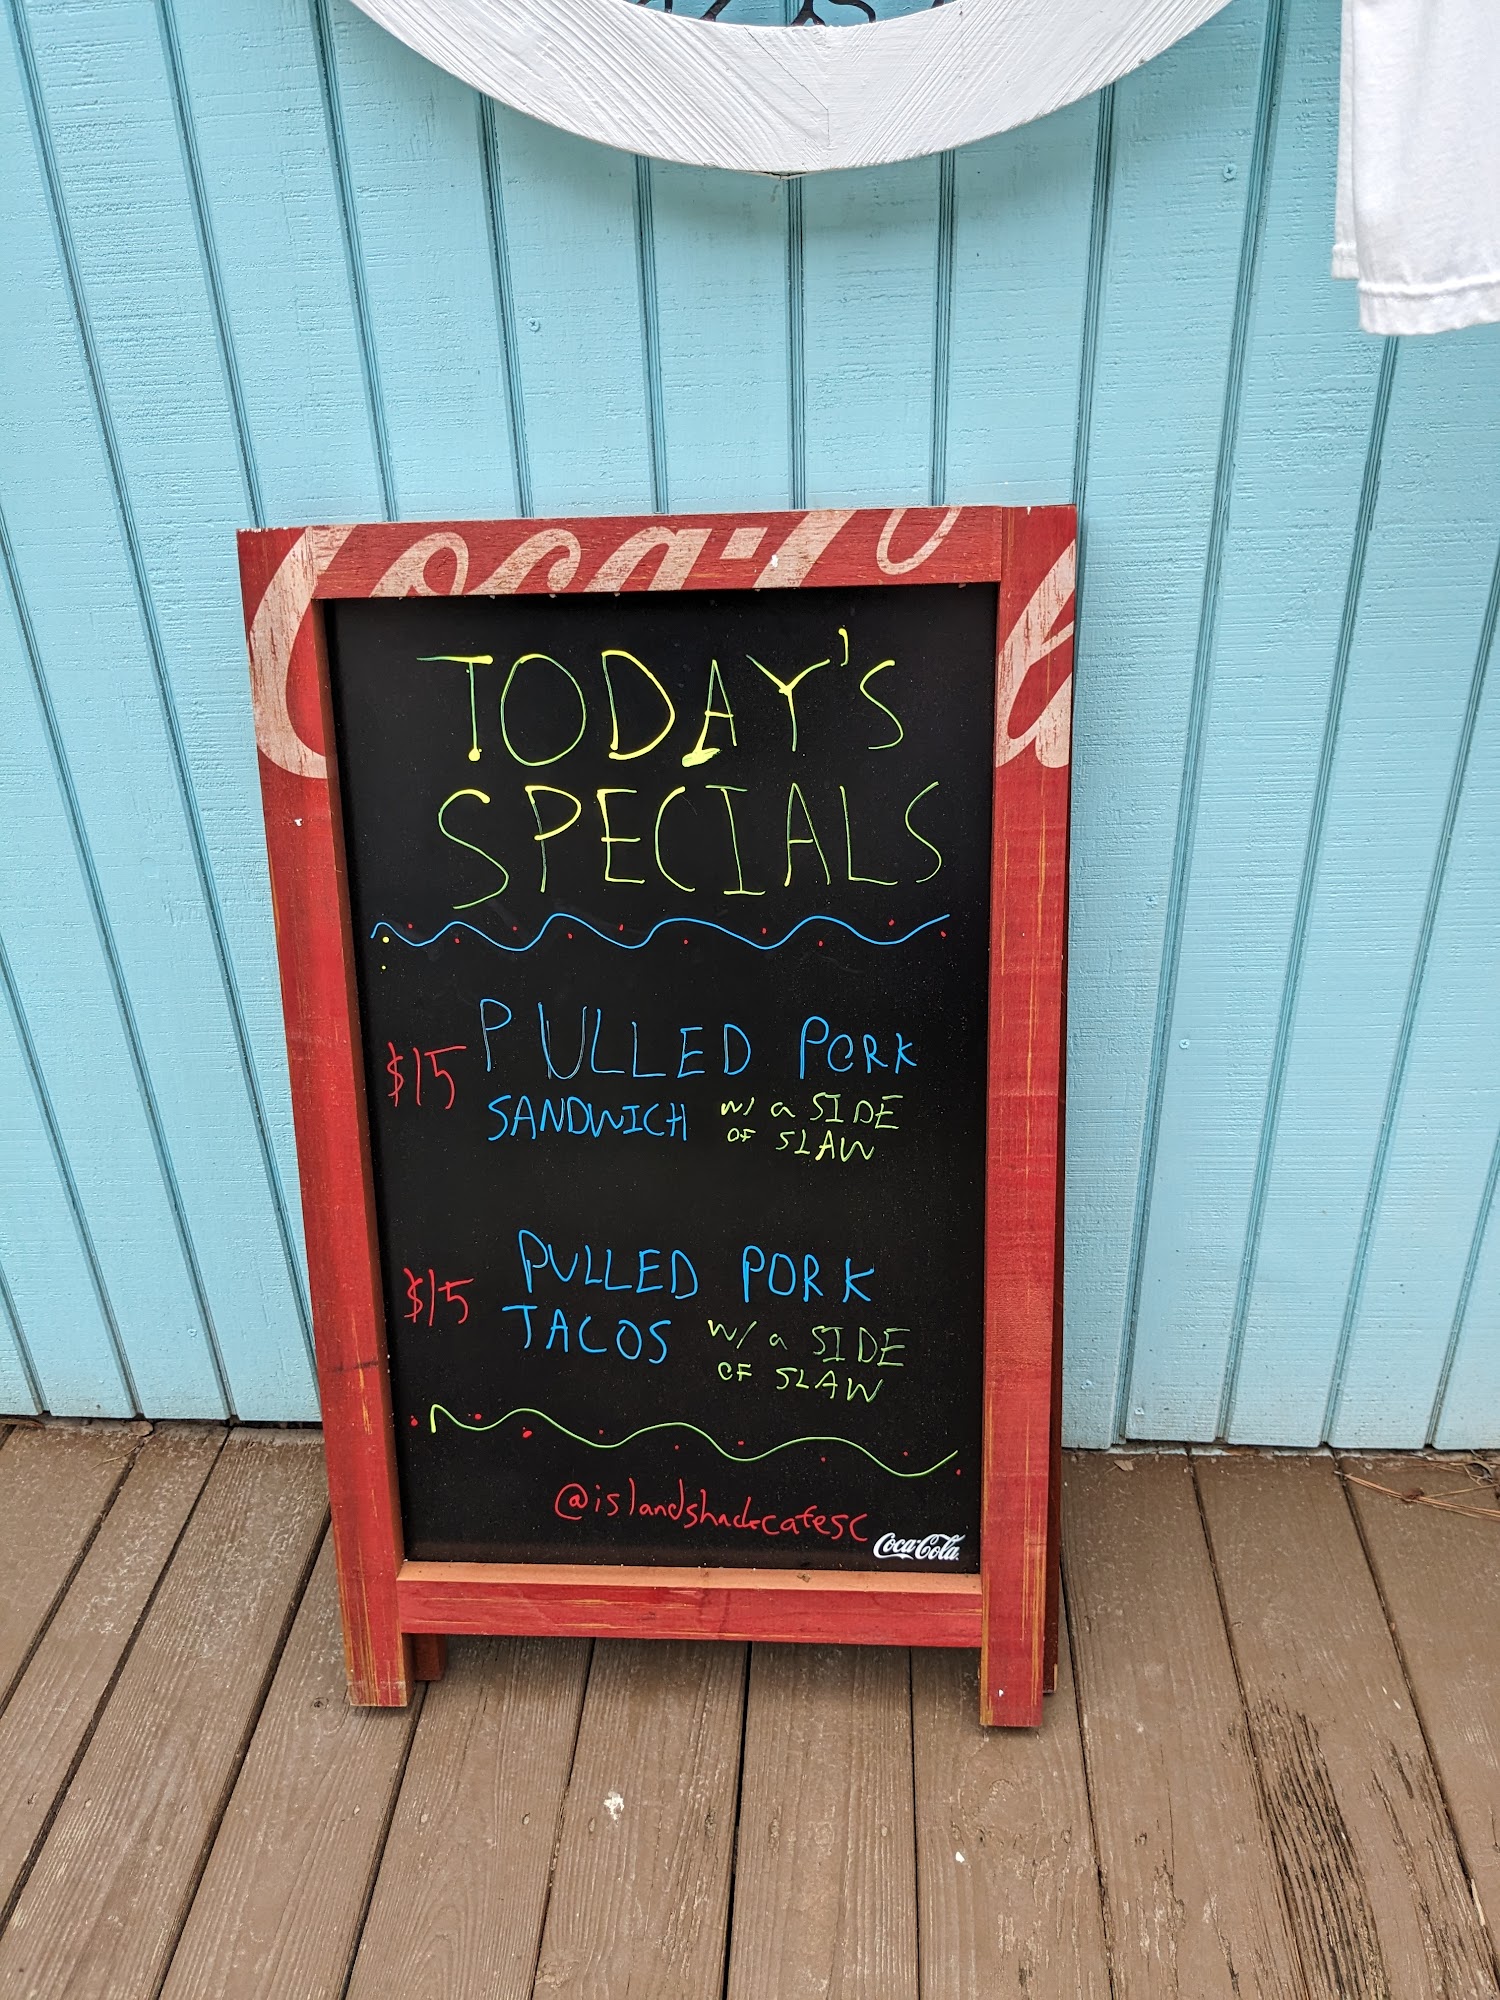 Coca-Cola
TODAY'S
SPECIALS
$15 PULLED PORK
SANDWICH w/ a SIDE
OF SLAW
$15 PULLED PORK
TACOS w/ a SIDE
OF SLAW
@islandshackcafesc
Coca-Cola